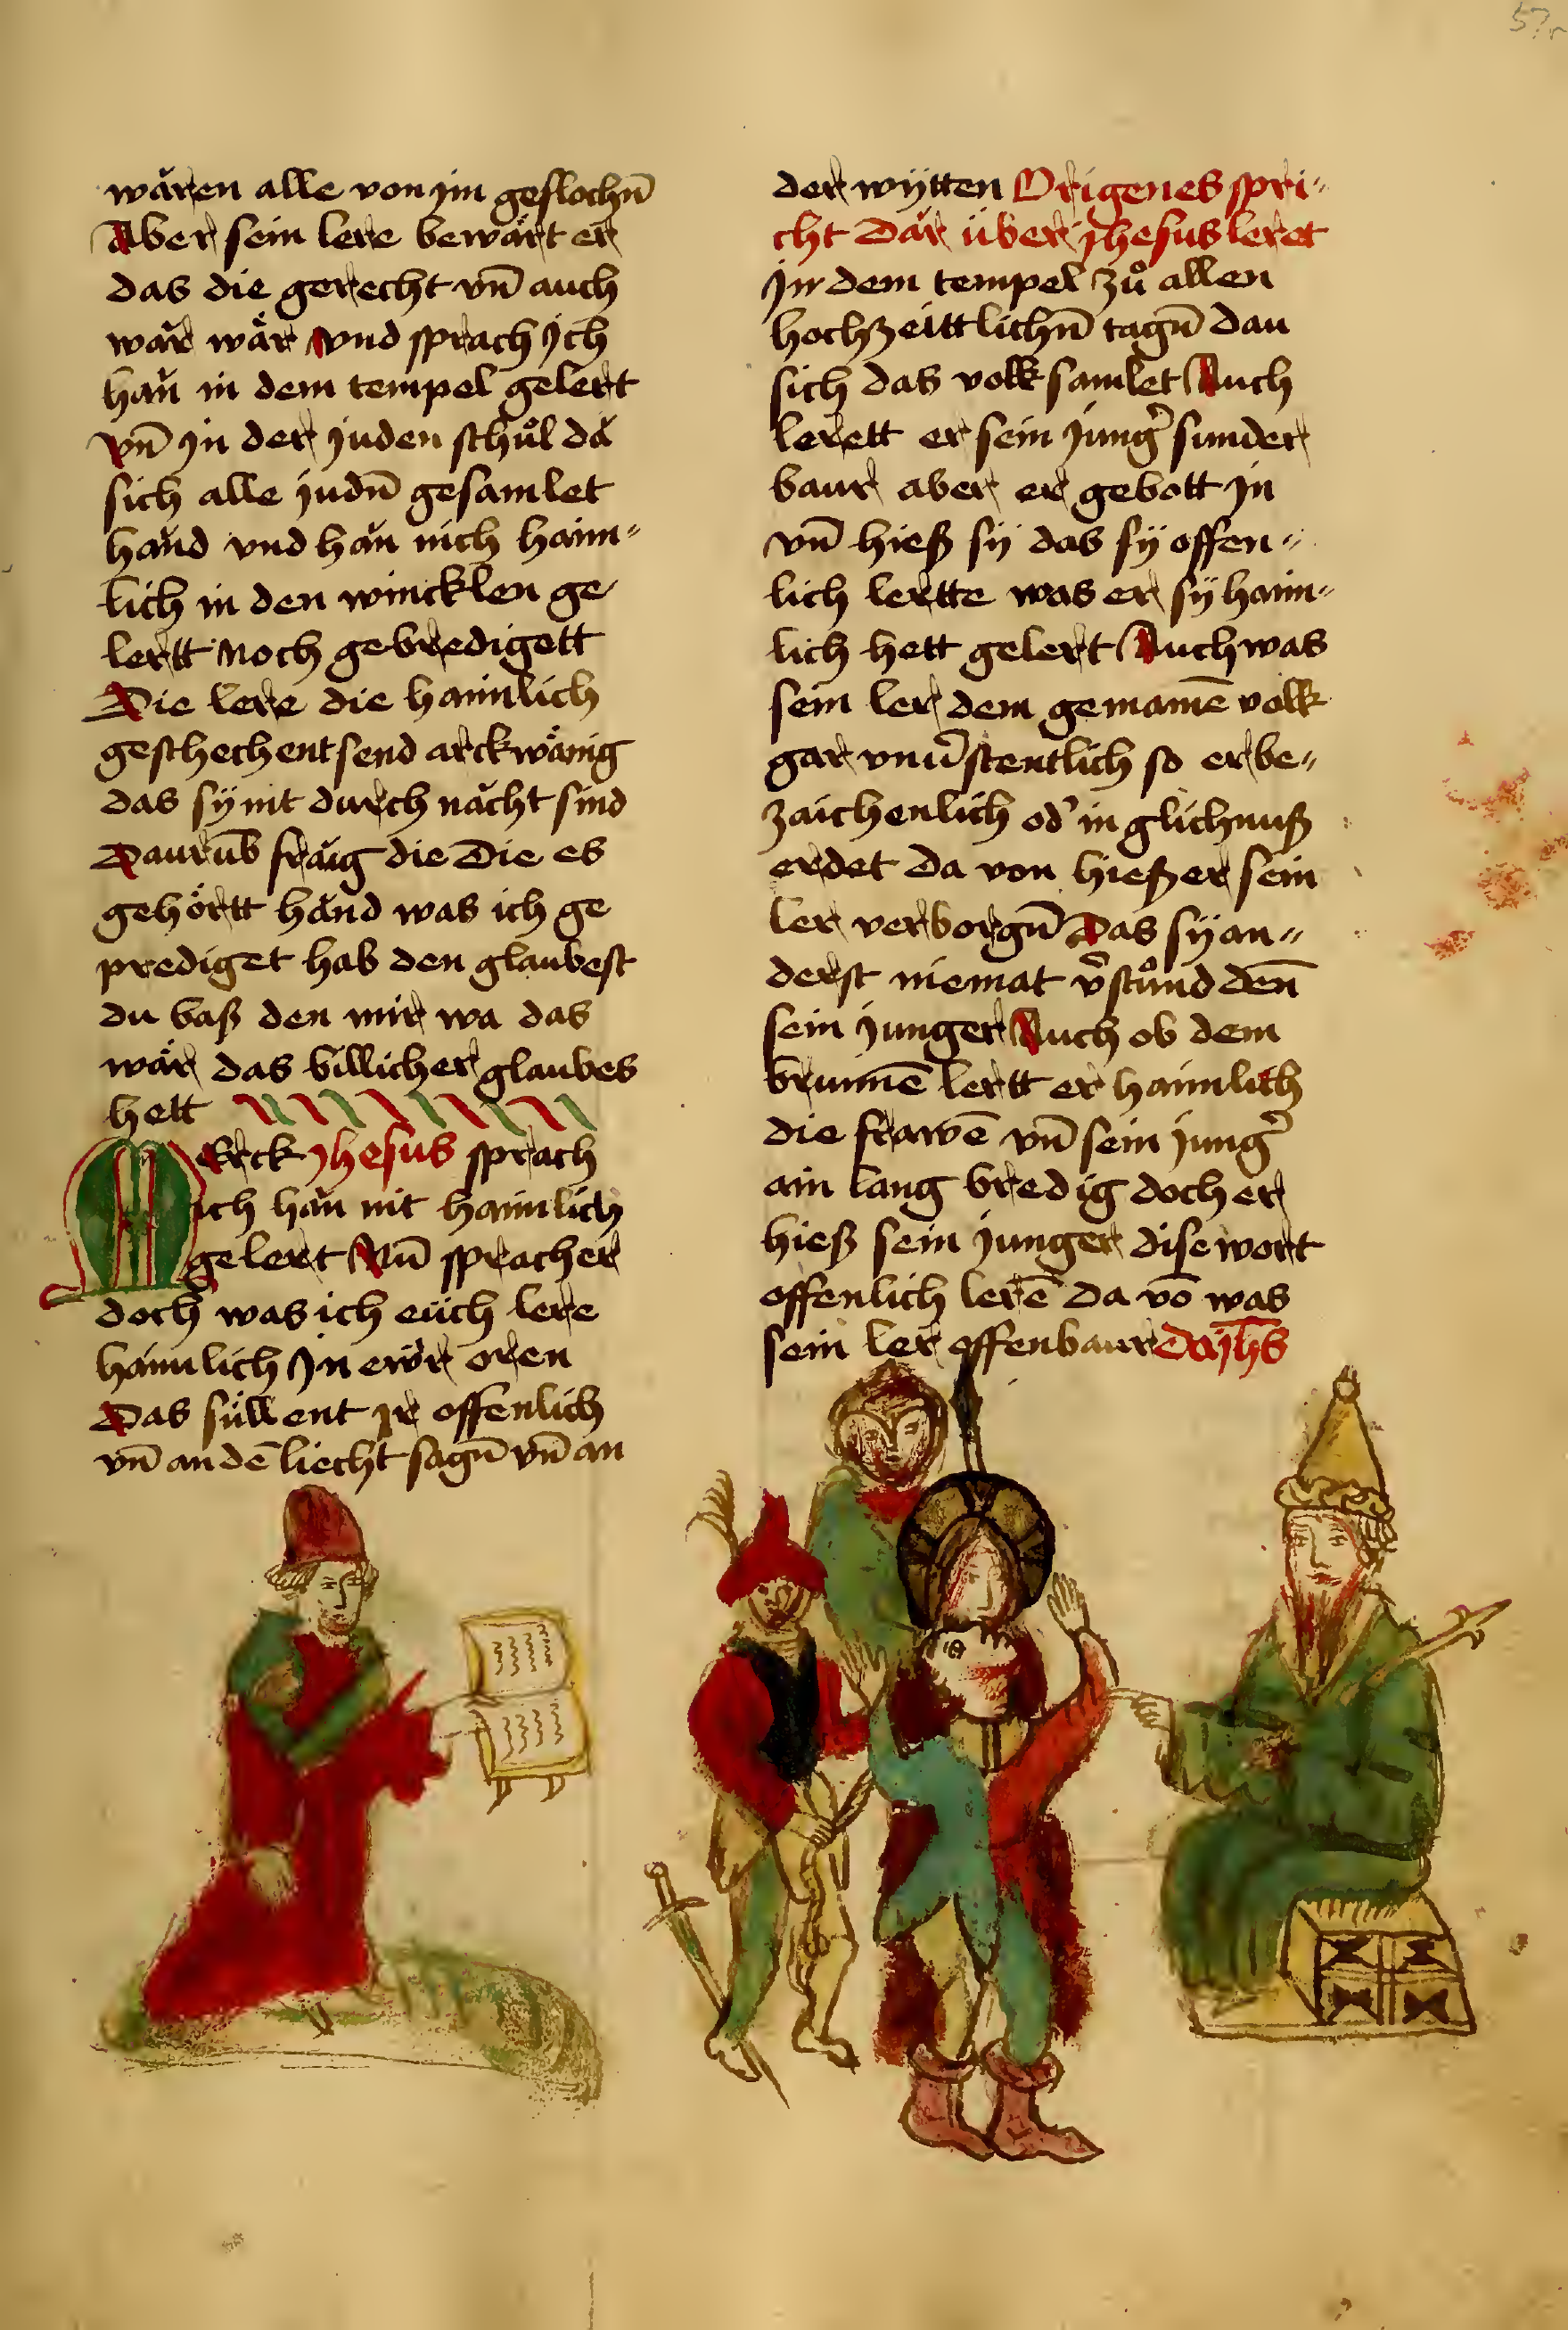 57r
wären alle von jm geflochn̄
Aber sein lere bewärt er
das die gerecht vn̄ auch
wär wär vnd sprach Ich
han in dem tempel gelert
vn̄ jn der juden schůl da
sich alle judn̄ gesamlet
hand vnd han nich haim=
lich in den wincklen ge
lertt noch gebredigett
Die lere die haimlich
geschechent send arckwänig
das sÿ nit durch nächt sind
Darumb fräg die Die es
gehörtt händ was ich ge
prediget hab den glaubest
du baß den mir wa das
wär das billicher glaubes
hett
Merck jhesus sprach
ich han nit haimlich
gelert Nun̄ sprach er
doch was ich eüch lere
haimlich Jn ewr oren
Das süllent jr offenlich
vn̄ an dē liecht sagn̄ vn̄ an
der wÿtten Origenes spri=
cht Där über jhesus leret
jn dem tempel zů allen
hochzeittlichn̄ tagn̄ dan
sich das volk samlet Auch
lerett er sein jung̉ sunder
baur aber er gebott jn
vn̄ hieß sÿ das sÿ offen=
lich lertte was er sÿ haim=
lich hett gelert Auch was
sein ler dem gemainē volk
gar vnủstentlich so er be=
zaichenlich od̉ in glichnuß
erdet da von hieß er sein
ler verborgn̄ Das sÿ an=
derst niemat v̉stůnd den̄
sein junger Auch ob dem
brunnē lertt er haimlich
die frawē vn̄ sein jung̉
ain lang bredig doch er
hieß sein junger dise wort
offenlich lerē da vō was
sein ler offenbaur Da jh̄s